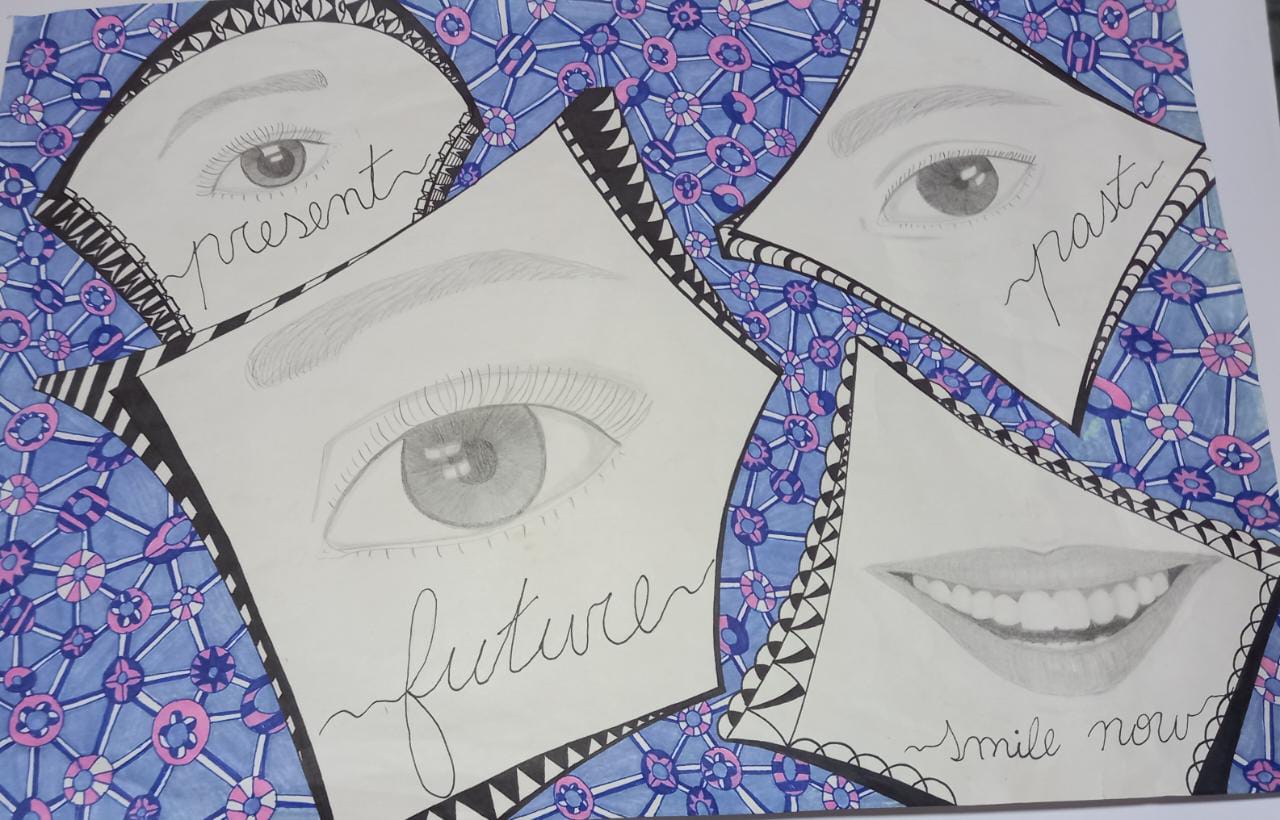 present
past
future
smile now